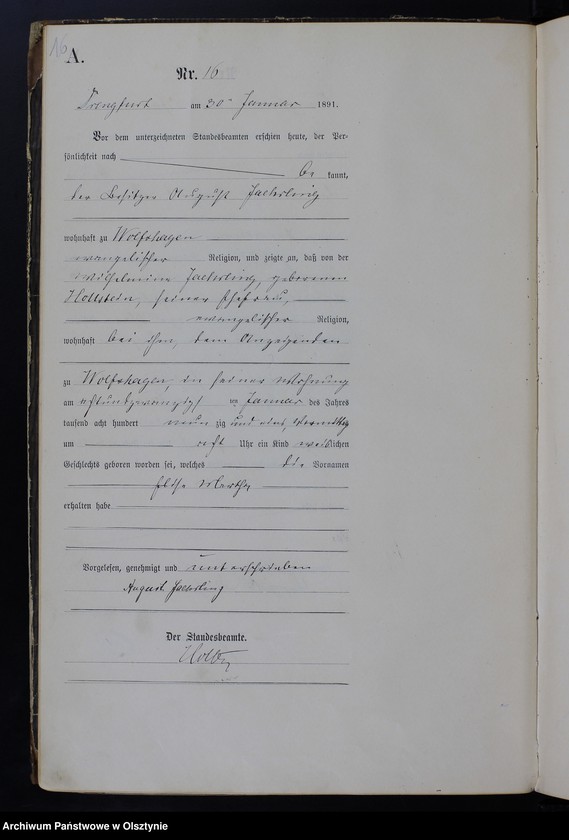 16
A.
Nr. 16
Drengfurt am 30ten Januar 1891.
Vor dem unterzeichneten Standesbeamten erschien heute, der Per-
sönlichkeit nach
be kannt,
der Besitzer August Jackerling
wohnhaft zu Wolfshagen
evangelischer Religion, und zeigte an, daß von der
Wilhelmine Jackerling, geborenen
Hollstein, seiner Ehefrau,
evangelischer Religion,
wohnhaft bei ihm, dem Anzeigenden
zu Wolfshagen, in seiner Wohnung
am ten Januar des Jahres
tausend acht hundert neun zig und eins Vormittag
um acht Uhr ein Kind weiblichen
Geschlechts geboren worden sei, welches die Vornamen
Elise Martha
erhalten habe
Vorgelesen, genehmigt und unterschrieben
August Jackerling
Der Standesbeamte.
Archiwum Państwowe w Olsztynie